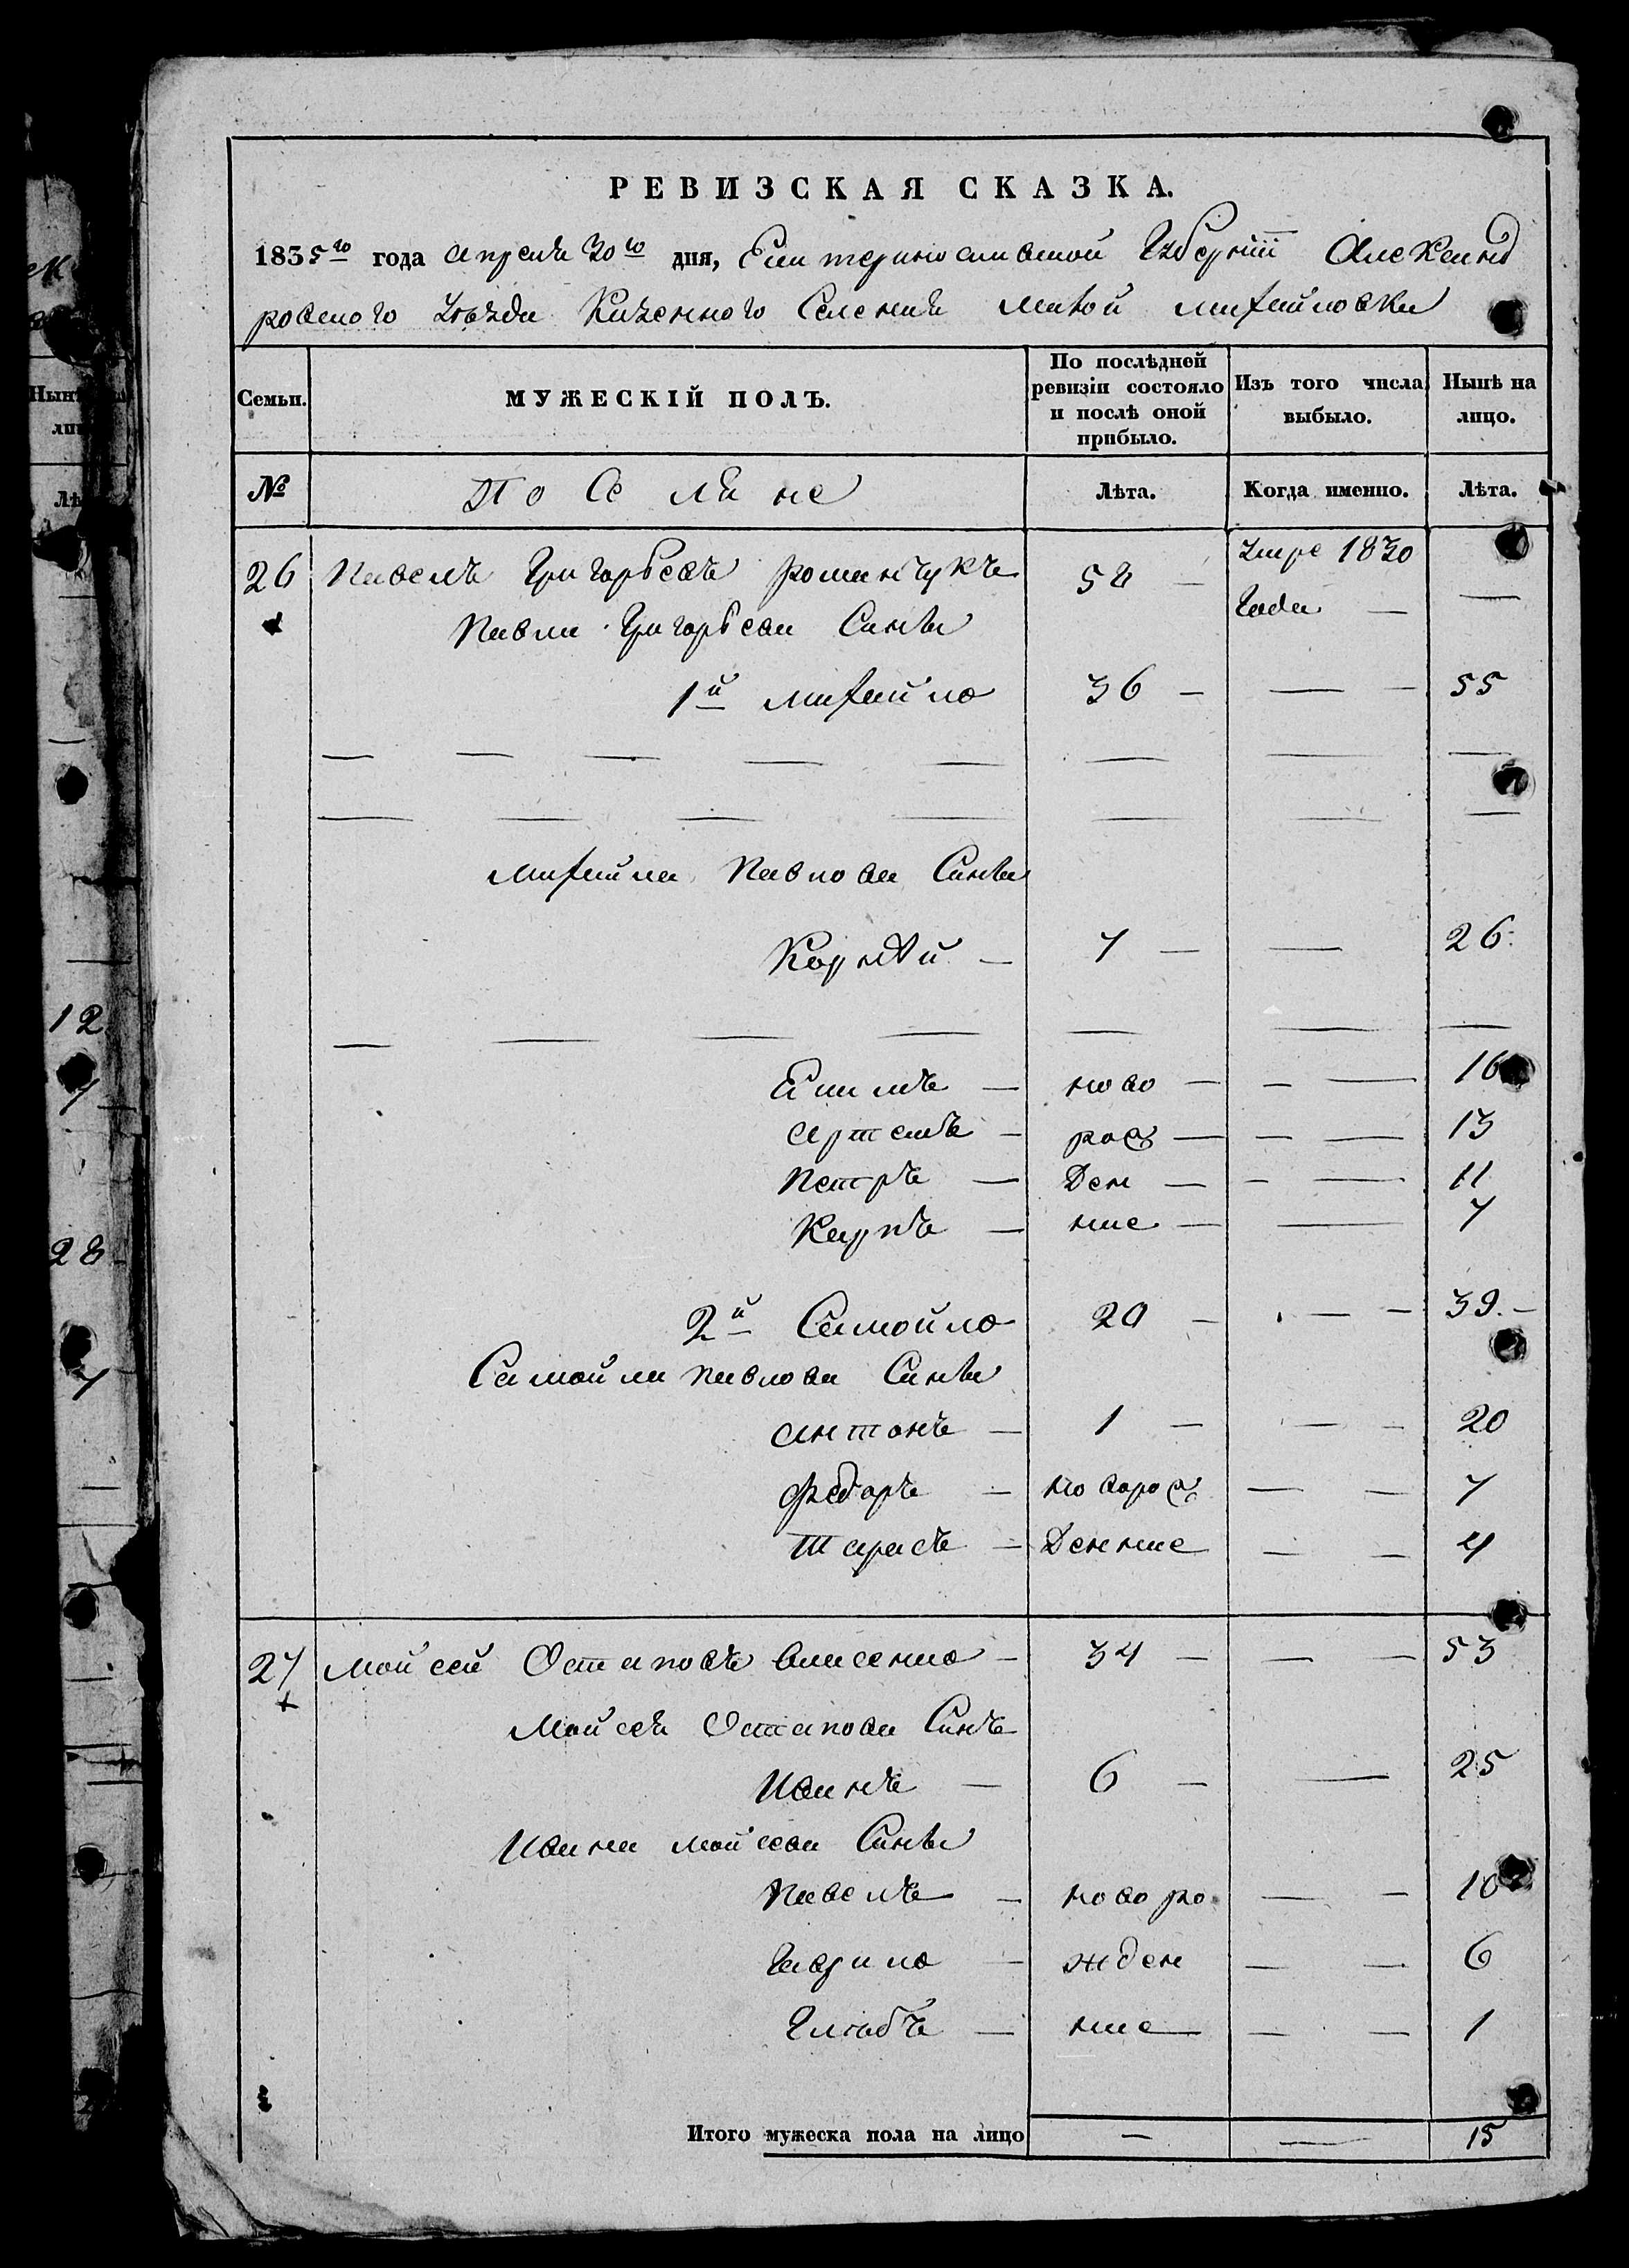 РЕВИЗСКАЯ СКАЗКА.
1835го года апреля 30го дня, Екатериносламской Губернiи Александ
ровского Уезда Казенного Селенiя малой михайловки
Семьи. МУЖЕСКІЙ ПОЛЪ. По послѣдней ревизіи состояло и послѣ оной прибыло. Изъ того числа выбыло. Нынѣ на лицо.
№ Поселяне Лѣта. Когда именно. Лѣта.
26 Павелъ Григорьевъ романчукъ 58 — умре 1830 года — —
Павла Григорьева Синъи
1й михайло 36 — — — 55
— — — — — — — —
— — — — — — — —
михайла Павлова Синъи
Корнѣй — 7 — — 26
— — — — — — —
Якимъ — ново — — — 16
артемъ — рож — — — 13
Петръ — Ден — — — 11
Карпъ — ние — — 7
2й Самойло 20 — — — 39. —
Самойла павлова Синъи
антонъ — 1 — — — 20
федоръ — новорож — — 7
тарасъ — Денние — — 4
27 мойсей Остаповъ власенко — 34 — — — 53
Мойсея Остапова Синъ
Иванъ — 6 — — 25
Ивана мойсева Синъи
Павелъ — новоро — — 10
Гаврило — жден — — 6
Глѣбъ — ние — — 1
Итого мужеска пола на лицо — — 15
Нынѣ
12
7
28
7